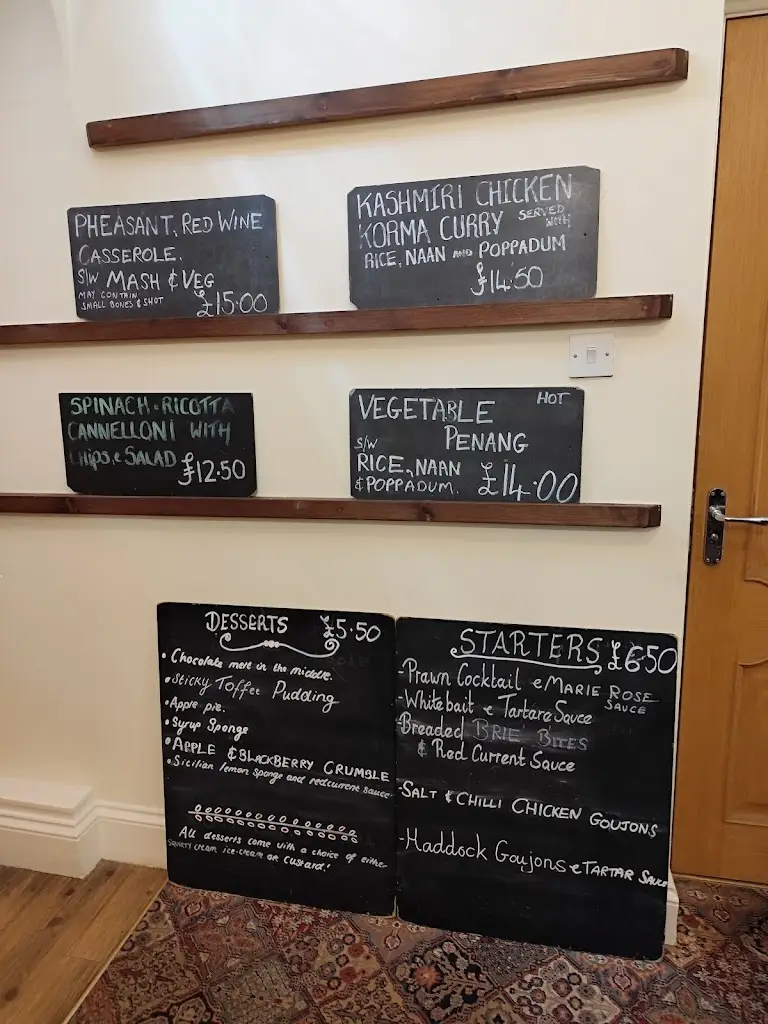 PHEASANT, RED WINE
CASSEROLE.
S/W MASH & VEG
MAY CONTAIN
SMALL BONES & SHOT
£15.00
KASHMIRI CHICKEN
KORMA CURRY SERVED WITH
RICE, NAAN AND POPPADUM
£14.50
SPINACH & RICOTTA
CANNELLONI WITH
CHIPS & SALAD £12.50
HOT
VEGETABLE
PENANG
S/W
RICE, NAAN
& POPPADUM. £14.00
DESSERTS £5.50
• Chocolate melt in the middle.
• Sticky Toffee Pudding
• Apple pie.
• Syrup Sponge
• APPLE & BLACKBERRY CRUMBLE
• Sicilian lemon sponge and redcurrent sauce
All desserts come with a choice of either
squirty cream, ice-cream or custard!
STARTERS £6.50
-Prawn Cocktail & MARIE ROSE
SAUCE
-Whitebait & Tartare Sauce
-Breaded BRIE BITES
& Red Current Sauce
-SALT & CHILLI CHICKEN GOUJONS
-Haddock Goujons & TARTAR SAUCE